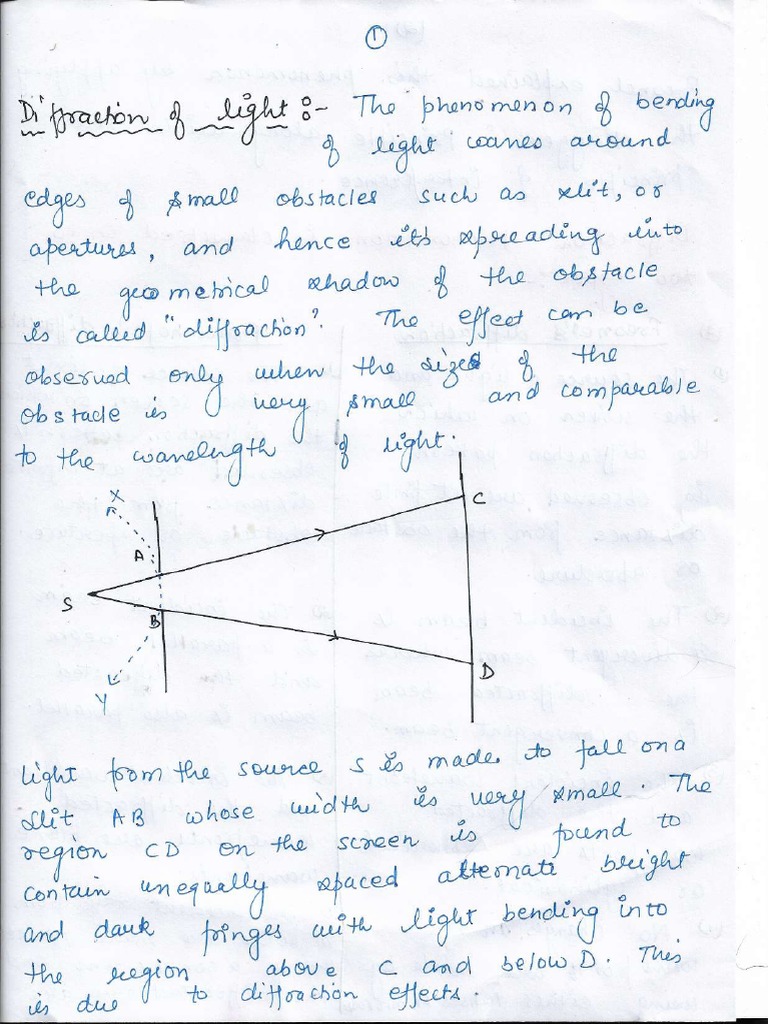 1
Diffraction of light :- The phenomenon of bending
of light waves around
edges of small obstacles such as slit, or
apertures, and hence its spreading into
the geometrical shadow of the obstacle
is called "diffraction". The effect can be
observed only when the sizes of the
obstacle is very small and comparable
to the wavelength of light.
X
C
A
S
B
D
Y
light from the source S is made to fall on a
slit AB whose width is very small. The
region CD on the screen is found to
contain unequally spaced alternate bright
and dark fringes with light bending into
the region above C and below D. This
is due to diffraction effects.